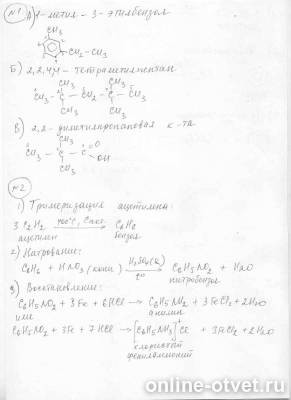 №1 А) 1-метил-3-этилбензол
CH3
CH2-CH3
Б) 2,2,4,4-тетраметилпентан
CH3 CH3
CH3 - C - CH2 - C - CH3
CH3 CH3
В) 2,2-диметилпропановая к-та
CH3
CH3 - C - C O
CH3 OH
№2
1) Тримеризация ацетилена:
3C2H2 → C6H6
ацетилен бензол
2) Нитрование:
C6H6 + HNO3 (конц) → C6H5NO2 + H2O
нитробензол
3) Восстановление:
C6H5NO2 + 3Fe + 6HCl → C6H5NH2 + 3FeCl2 + 2H2O
или анилин
C6H5NO2 + 3Fe + 7HCl → [C6H5NH3]+Cl- + 3FeCl2 + 2H2O
хлористый
фениламмоний
online-otvet.ru